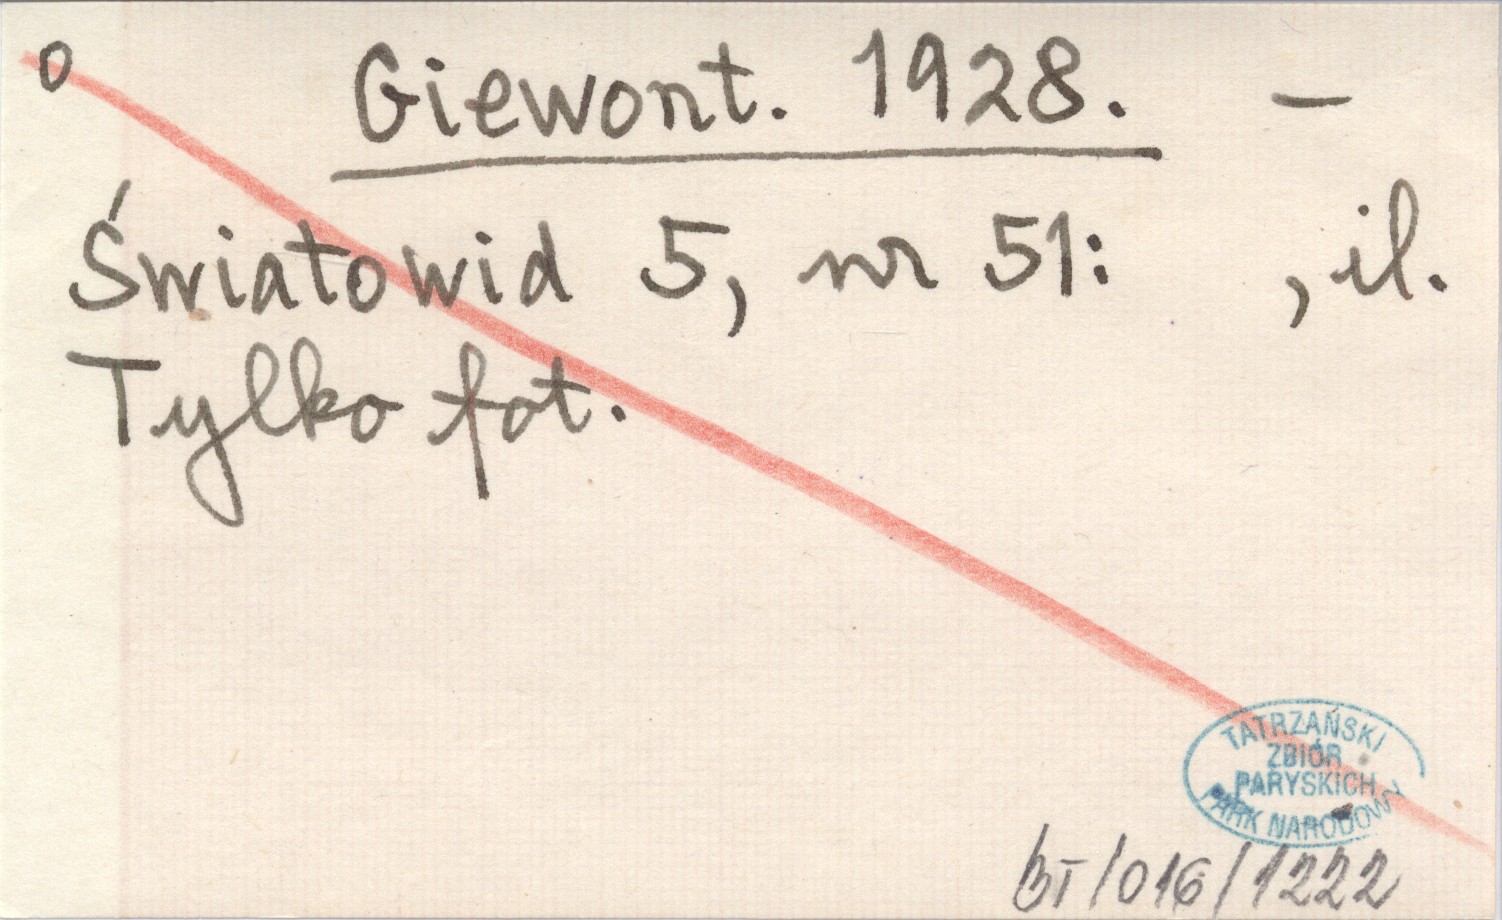 o Giewont. 1928. –
Światowid 5, nr 51: , il.
Tylko fot.
TATRZAŃSKI
ZBIÓR
PARYSKICH
PARK NARODOWY
BT/016/1222